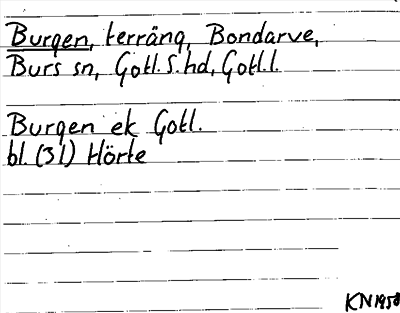 Burgen, terräng, Bondarve,
Burs sn, Gotl. S. hd, Gotl. l.
Burgen ek Gotl.
bl. (31) Hörte
KN 1958